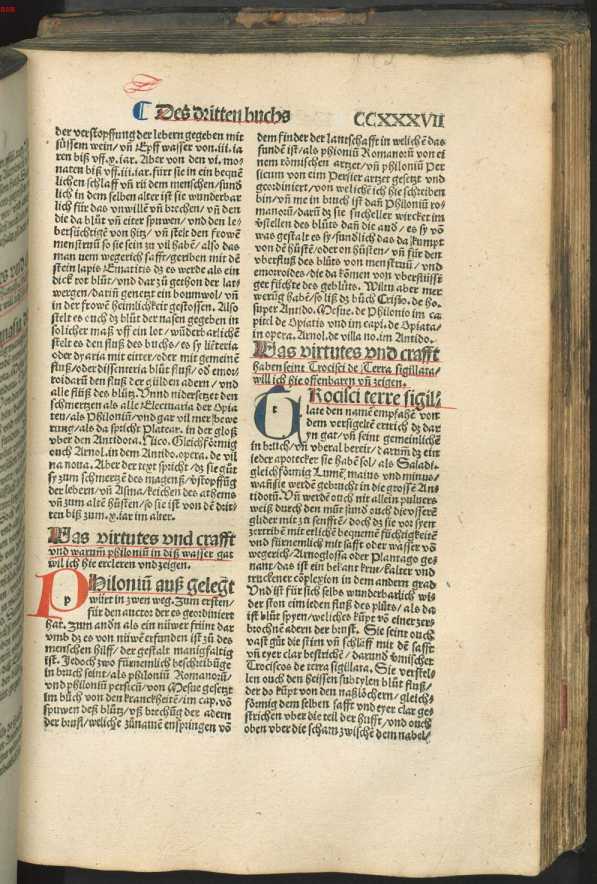 Des dritten buchs
CCXXXVII
der verstopffung der lebern gegeben mit
süssem wein/ vñ Epff wasser von.iii.ia
ren biß vff.v.iar. Aber von den vi. mo-
naten biß vff.iii.iar. fürt sie in ein bequẽ
lichen schlaff vñ rü dem menschen/sunð
lich in dem selben alter ist sie wunderbar
lich für das vnwillẽ vñ brechen/ vñ den
die da blüt vñ eiter spuwen/ vnd den le-
bersüchtigẽ vñ hitz/ vñ stelt den frowẽ
menstruũ so sie sein zu vil habẽ/ also das
man uem wegerich safft/geriben mit dẽ
stein lapis Ematitis dz es werde als ein
dick rot blüt/ vnd dar zü gethon der lat-
wergen/darin genetzt ein boumwol/ vñ
in der frowẽ heimlichkeit gestossen. Also
stelt es ouch dz blüt der nasen gegeben in
solicher maß vff ein lot/ wũderbarlichẽ
stelt es den fluß des buchs/ es sy liẽteria
oder dyaria mit eitter/oder mit gemeinẽ
fluß/oder dissenteria blüt fluß/ od emor-
roidarũ den fluß der gülden adern / vnd
alle flüß des blütz. Vnnd nidersetzet den
schmertzen als alle Electuaria der Opia
ten/als Philoniũ/vnd gar vil mer bewe
rung/als da spricht Platear. in der gloß
vber den Antidota. Nico. Gleich förmig
ouch Arnol.in dem Antido.opera. de vil
na noua. Aber der text spricht / dz sie güt
sy zum schmertzẽ des magenß/ v̉stopffũg
der lebern/ vñ Asma/keichen des athems
vñ zum altẽ hüsten/ so sie ist von dẽ drit-
ten biß zum.x.iar im alter.
Was virtutes vnd crafft
vnd warumb philoniũ in diß wasser gat
wil ich hie ercleren vnd zeigen.
Philoniũ auß gelegt
würt in zwen weg. Zum ersten/
für den auctor der es geordiniert
hat. Zum andñ als ein nüwer friint dar
vmb dz es von nüwẽ erfunden ist zü des
menschen hilff/ der gestalt manigfaltig
ist. Jedoch zwo fürnemlich beschribũge
in bruch seint/als philoniũ Romanorũ/
vnd philoniũ persicũ/ von Mesue gesetzt
im büch von den kranckheitẽ/im cap.võ
spuwen deß blütz/ vß brechũg der adern
der brust/weliche zünamẽ enspringen võ
dem finder der lantschafft in welichẽ das
fundẽ ist/als phloniũ Romanorũ von ei
nem römischen artzet/ vñ philoniũ Per
sicum von eim Persier artzet gesetzt vnd
geordiniert/von welichẽ ich hie schreiben
bin/vñ me in bruch ist dañ Philoniũ ro-
manorũ/darũ dz sie sucheller wircket im
v̉stellen des blüts dañ die and / es sy võ
was gestalt es sy/fundlich das da kumpt
von dẽ hüstẽ/oder on hüsten/ vñ für den
vberfluß des blüts von menstruũ / vnd
emorroides/die da kõmen von vberflüssi
ger füchte des geblüts. Wiltu aber mer
werũg habẽ/so liß dz büch Cristo.de ho.
super Antido. Mesue.de Philonio im ca
pitel de Opiatis vnd im capi.de Opiata/
in opera. Arnol.de villa no.im Antido.
Was virtutes vnd crafft
haben seint Trocisci de Terra sigillata/
will ich hie offenbaren vñ zeigen.
TRocisci terre sigil/
late den namẽ empfahẽ von
dem versigeltẽ ertrich dz dar
yn gat/ vñ seint gemeinlichẽ
in bruch/vñ vberal bereit/ darumb dz ein
ieder apotecker sie habẽ sol/ als Saladi.
gleich förmig Lumẽ maius vnd minus/
wañ sie werdẽ gebrucht in die grossẽ An-
tidotũ. Vñ werdẽ ouch nit allein puluers
weiß durch den mũt sund ouch die vsserẽ
glider mit zü senfftẽ/ doch dz sie vor syen
zerribẽ mit erlichẽ bequemẽ füchtigkeitẽ
vnd fürnemlich mit safft oder wasser võ
wegerich/Arnoglossa oder Plantago ge-
nant/das ist ein bekant krut/kalter vnd
truckener cõplexion in dem andern grad
Vnd ist für sich selbs wunderbarlich wi-
der ston eim ieden fluß des plüts/ als da
ist blüt spyen/weliches küpt võ einer zers
brochnẽ adern der brust. Sie seint ouch
vast güt die stim vñ schläff mit dẽ safft
vñ eyer clar bestrichẽ/ darunð v̉mischet
Trociscos de terra sigillata. Sie verstel-
len ouch den heissen subtylen blüt fluß/
der do küpt von den naßlöchern/ gleich-
förmig dem selben safft vnd eyer clar ge-
strichen vber die teil der hufft/ vnd ouch
oben vber die scham zwischẽ dem nabel/